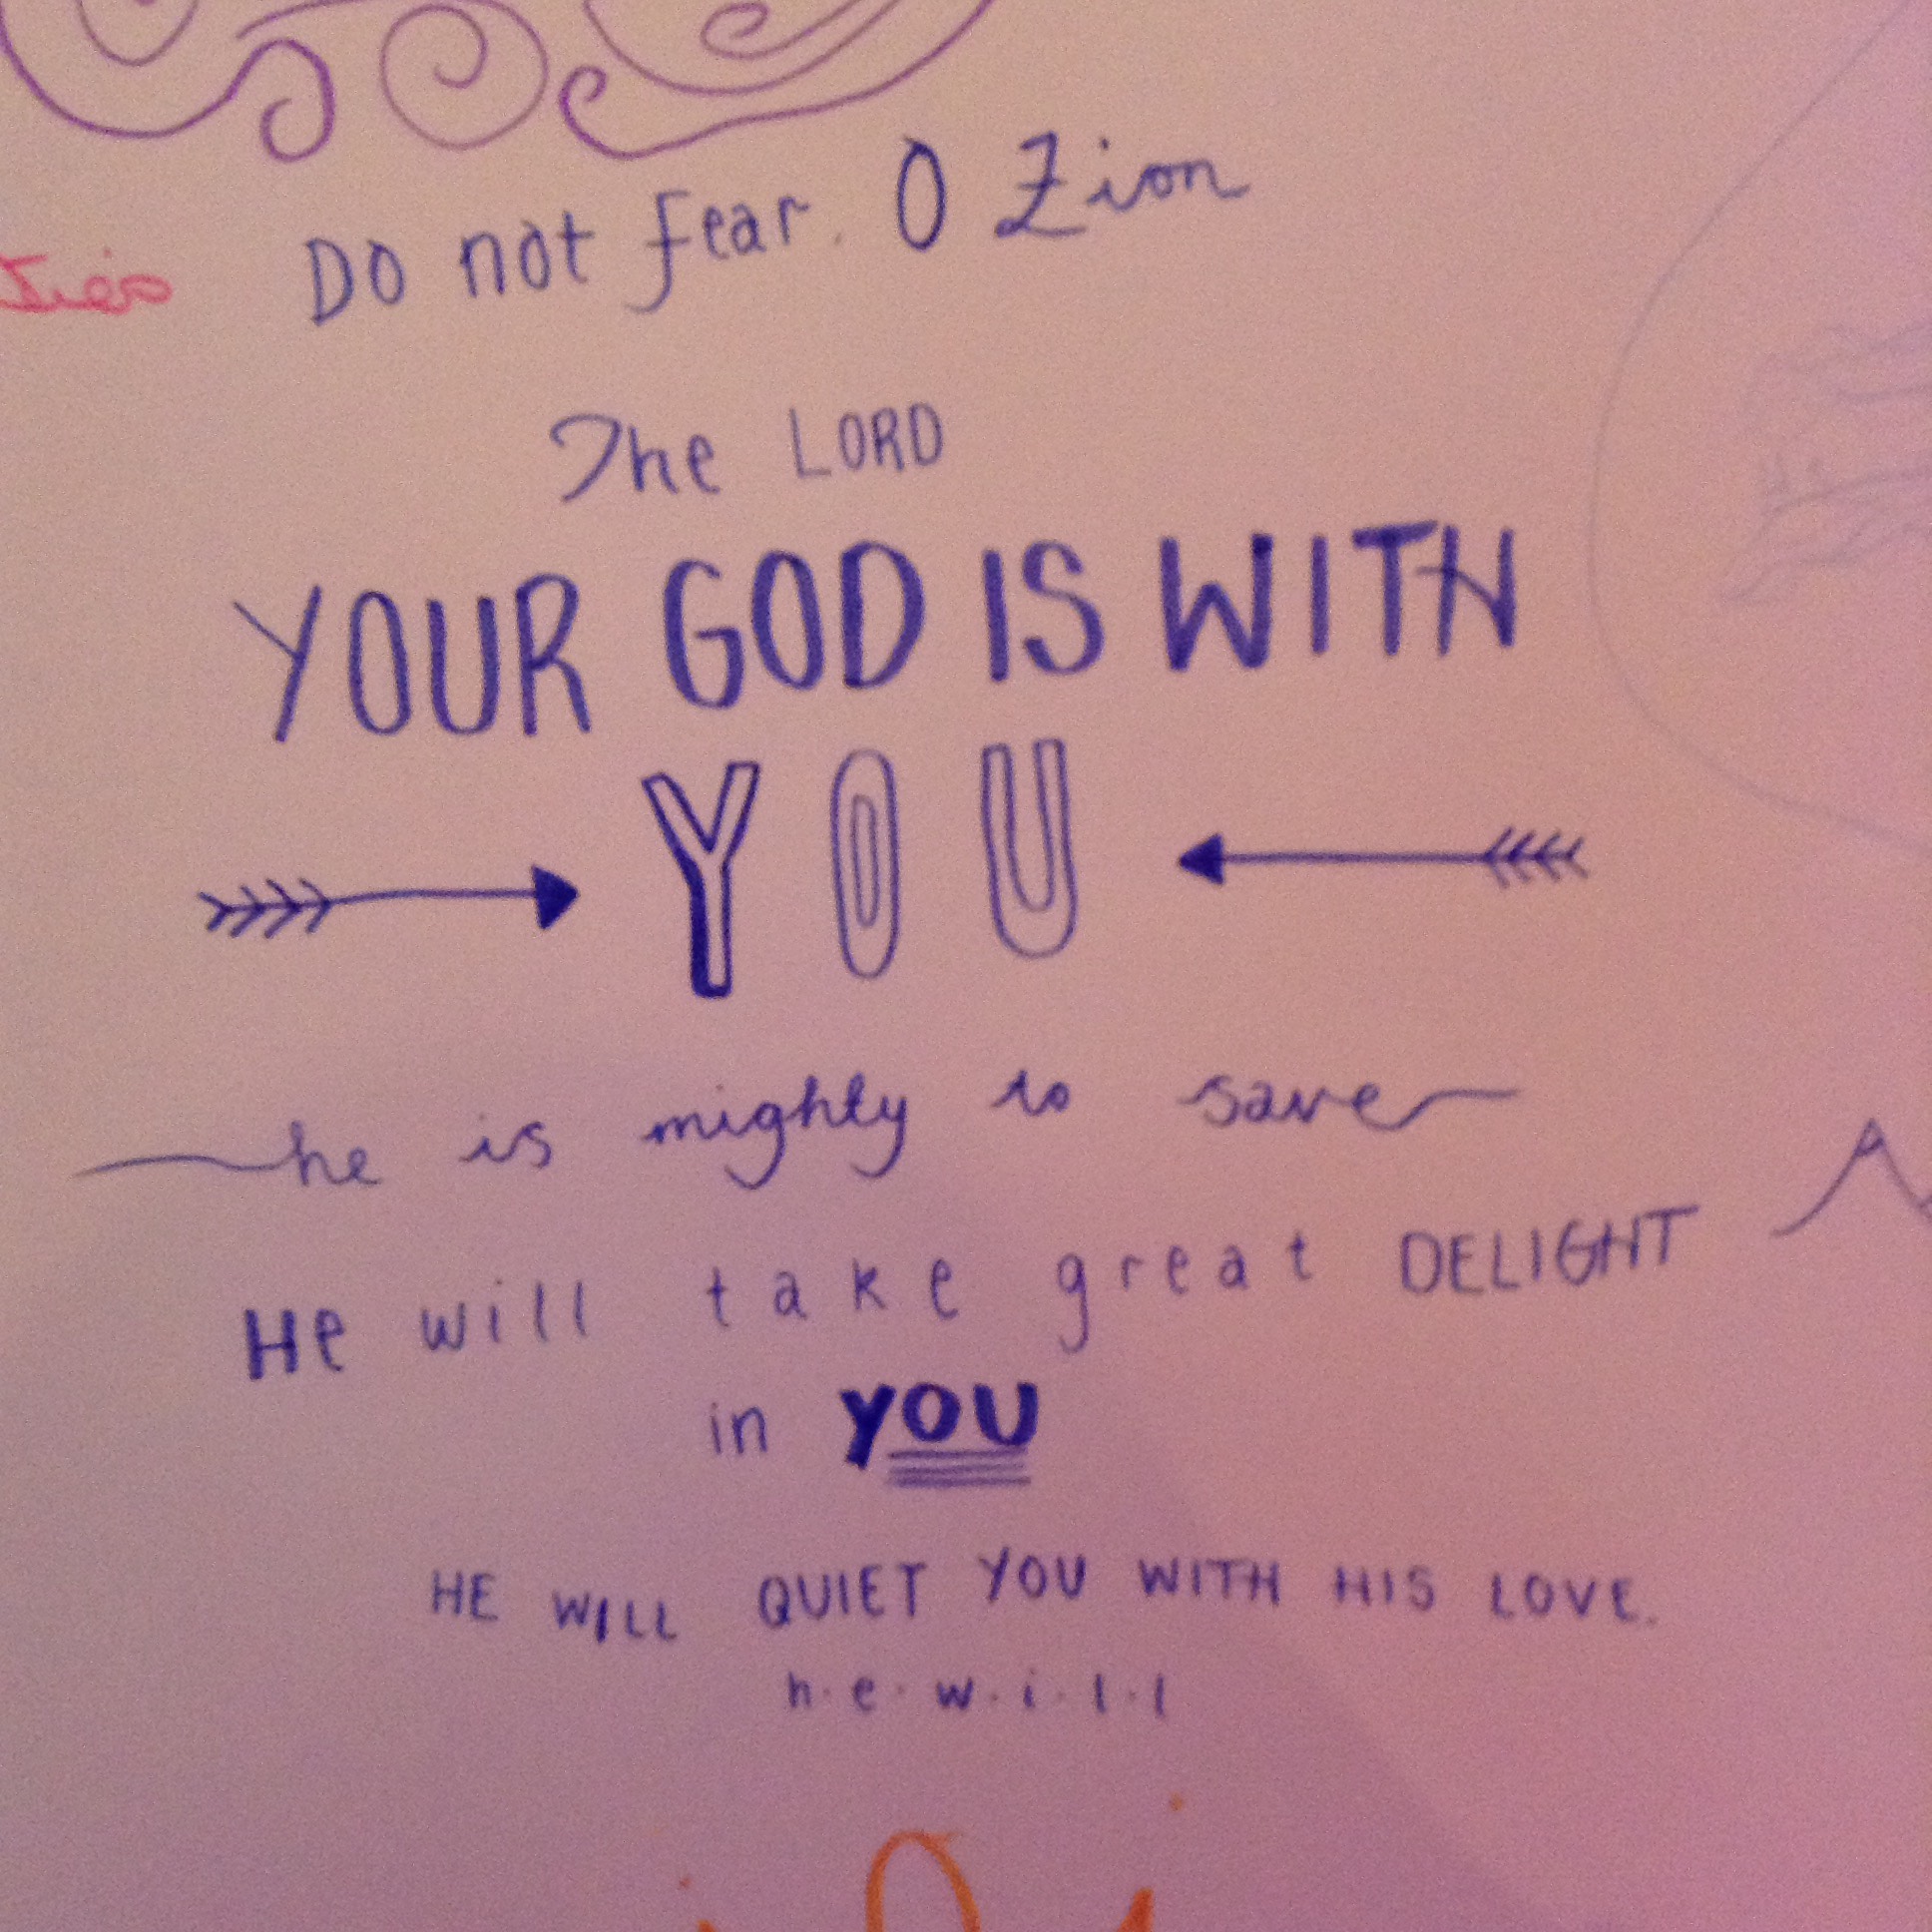 Do not fear. O Zion
The LORD
YOUR GOD IS WITH
YOU
he is mighty to save
He will take great DELIGHT
in you
HE WILL QUIET YOU WITH HIS LOVE.
h.e.w.i.l.l